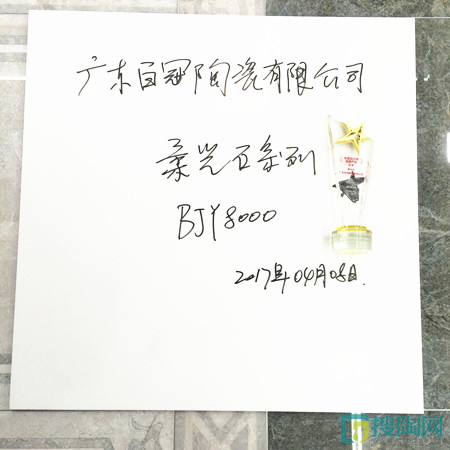 广东百冠陶瓷有限公司
柔光石系列
BJY8000
2017年04月08日.
搜陶网